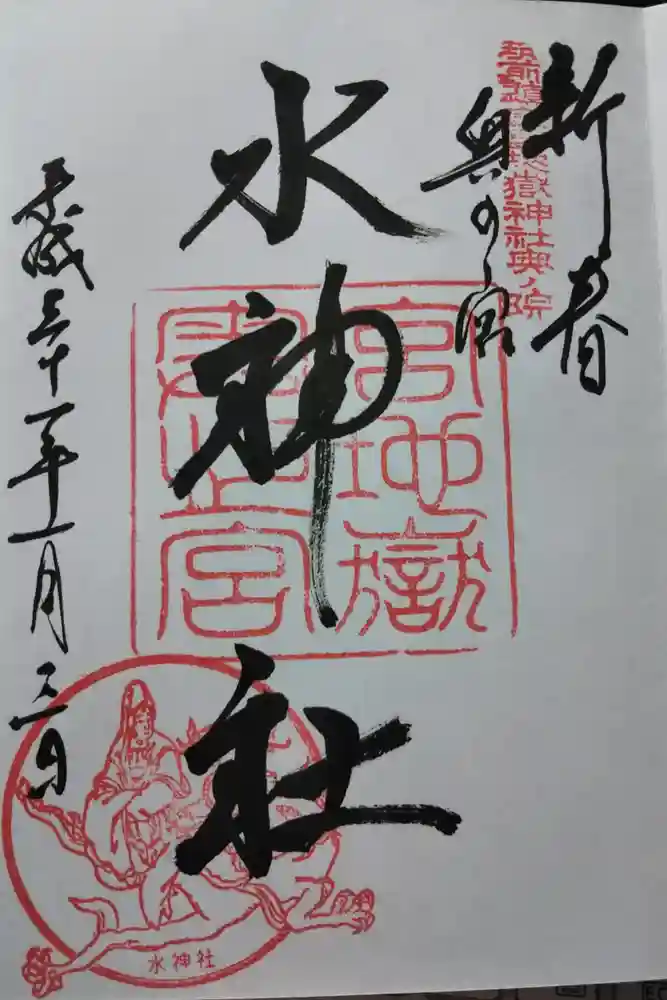 新春
奥の宮
水神社
平成三十一年一月三日
嶽神社奥ノ院
宮地嶽
宮
水神社